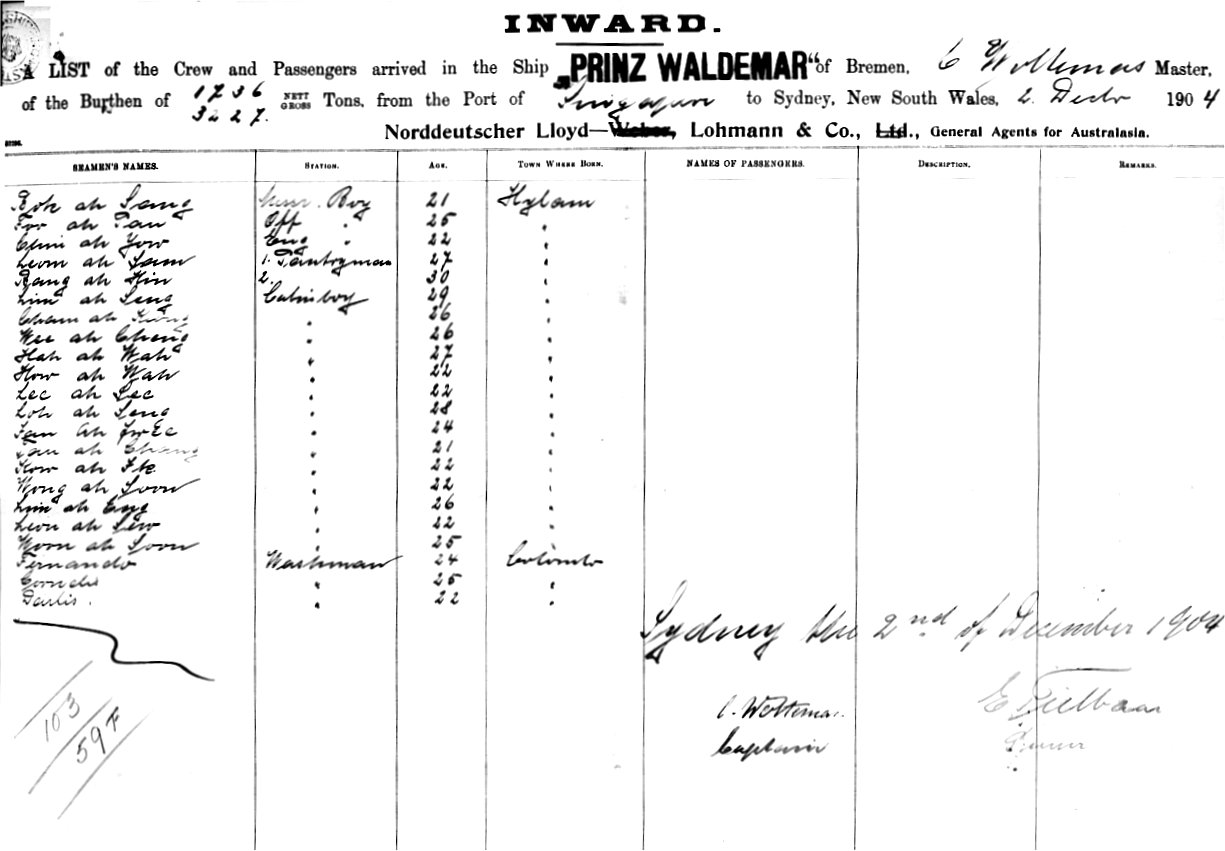 INWARD.
A LIST of the Crew and Passengers arrived in the Ship "PRINZ WALDEMAR" of Bremen, C Woltemas Master,
of the Burthen of 1736 NETT Tons, from the Port of Singapore to Sydney, New South Wales, 2. Decbr 1904
3227. GROSS
Norddeutscher Lloyd—Weber, Lohmann & Co., Ltd., General Agents for Australasia.
SEAMEN'S NAMES. STATION. AGE. TOWN WHERE BORN. NAMES OF PASSENGERS. DESCRIPTION. REMARKS.
ah Boy 21 Hylam
Foo ah Tan Off " 25 "
ah Yow Eng " 22 "
Leom ah Sam 1. Pantryman 27 "
ah Hin 2. 30 "
Lim ah Seng Cabinboy 29 "
Cham ah " 26 "
Wee ah Cheng " 26 "
Hah ah Wah " 27 "
How ah Wah " 22 "
Lee ah Lee " 22 "
Loh ah Seng " 28 "
Tan Ah " 24 "
Tan ah Chang " 21 "
How ah " 22 "
Wong ah Soon " 22 "
Lim ah Eng " 26 "
Leon ah Sew " 22 "
Woon ah Soon " 25
Fernando Washman 24 Colombo
Cornelis " 25 "
Darlis. " 22 "
Sydney the 2nd of December 1904
C. Woltemas.
Captain
103
597